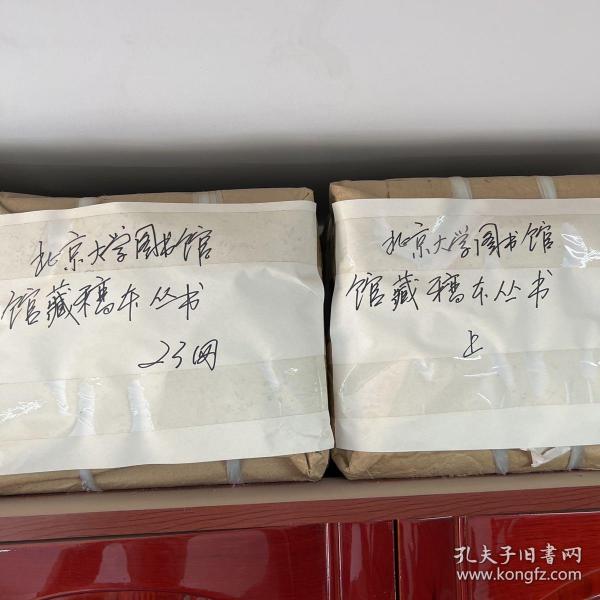 北京大学图书馆
馆藏稿本丛书
23册
北京大学图书馆
馆藏稿本丛书
上
孔夫子旧书网
www.kongfz.com